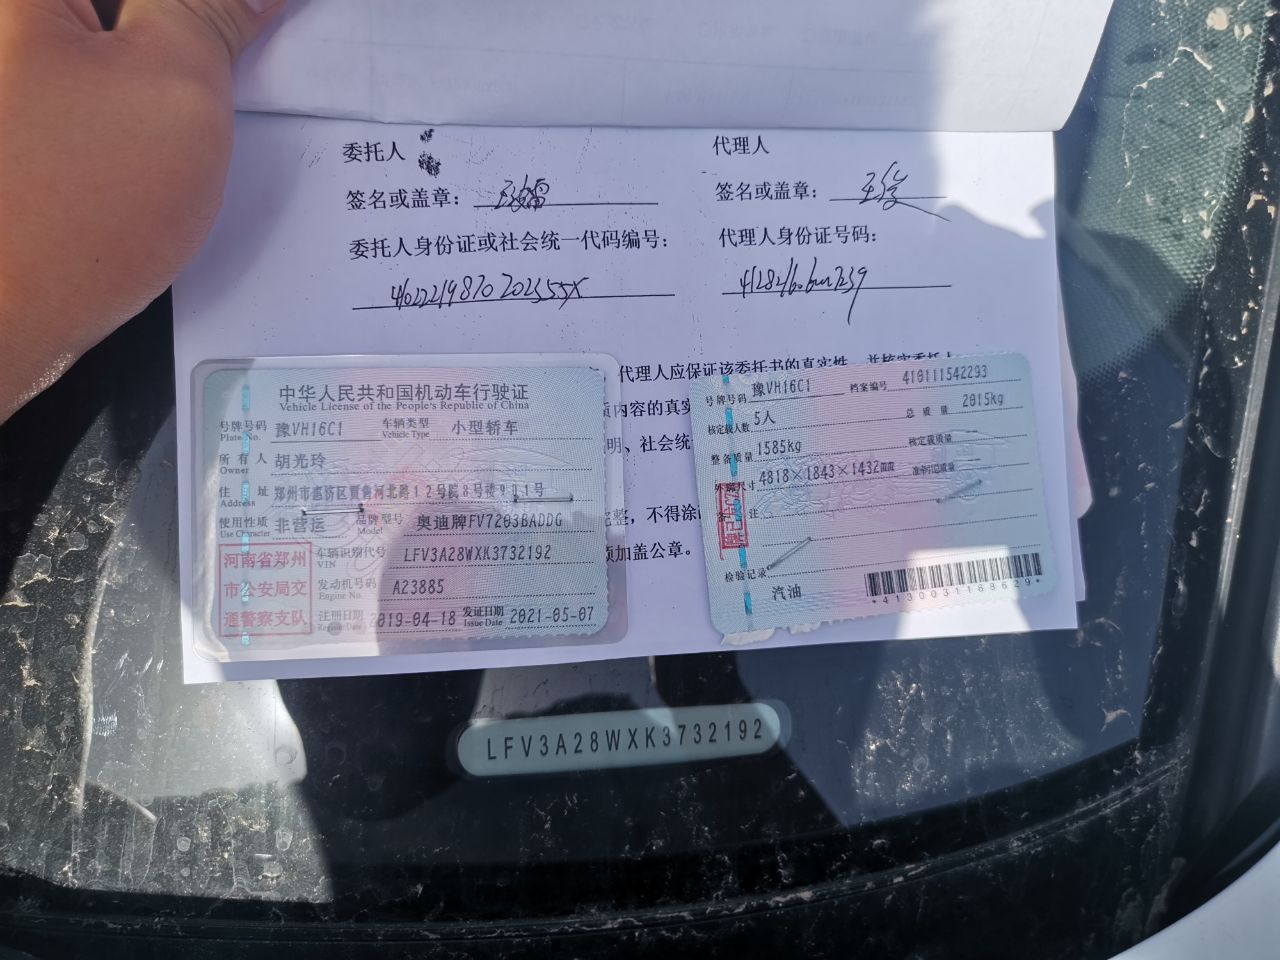 委托人
代理人
签名或盖章：
签名或盖章：
委托人身份证或社会统一代码编号：
代理人身份证号码：
代理人应保证该委托书的真实性，并核实委托人
中华人民共和国机动车行驶证
Vehicle License of the People's Republic of China
号牌号码 豫VH16C1 车辆类型 小型轿车
Plate No. Vehicle Type
所有人 胡光玲
Owner
住址 郑州市惠济区贾鲁河北路12号院8号楼901号
Address
使用性质 非营运 品牌型号 奥迪牌FV7203BADDG
Use Character Model
河南省郑州
市公安局交
通警察支队
车辆识别代号 LFV3A28WXK3732192
VIN
发动机号码 A23885
Engine No.
注册日期 2019-04-18 发证日期 2021-05-07
Register Date Issue Date
号牌号码 豫VH16C1 档案编号 410111542293
核定载人数 5人 总质量 2015kg
整备质量 1585kg 核定载质量
外廓尺寸 4818×1843×1432mm 准牵引总质量
备注
检验记录
汽油
*4130031168629*
内容的真实
明、社会统
完整，不得涂
须加盖公章。
LFV3A28WXK3732192